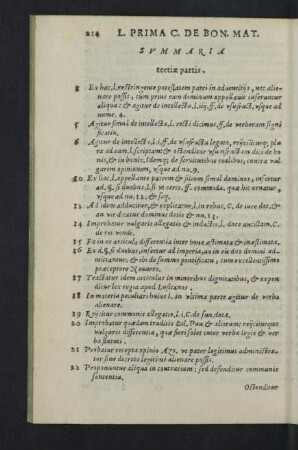 214 L. PRIMA C. DE BON. MAT.
SVMMARIA
tertiæ partis.
8 Ex hac l. restringitur potestatem patri in aduentitijs, nec alie-
nare possit, cum prius eum dominum appellauit inferuntur
aliqua: & agitur de intellectu l. iij. ff. de vsufruct. vsque ad
nume. 4.
5 Agitur simul de intellectu, l. recte dicimus, ff. de verborum signi
ficatio.
6 Agitur de intellectu, l. si, ff. de vsufructu legato, reijciturq;
ad eam l. scriptam: & ostenditur vsumfructum deci de bo
nis, & in bonis, idemq; de seruitutibus realibus, contra vul-
garem opinionem, vsque ad nu. 9.
10 Ex hac l. appellante patrem & filium simul dominos, infertur
ad. §. si duobus, l. fi ve cerro. ff. commoda. qua hic ornatur,
vsque ad nu. 12. & seq.
13 Ad idem adducitur, & explicatur, l. in rebus, C. de iure dot. &
an vir dicatur dominus dotis & nu. 13.
14 Improbatur vulgaris allegatio & inductio, l. doce ancillam. C.
de rei vendi.
15 Ex in ea articul. differentia inter bona æstimata & inæstimata.
16 Ex d. §. si duobus, infertur ad imperiũ, an in eo duo domini ad
mittantur: & ibi de summo pontificatu, cum excellentissimo
præceptore Nauarro.
17 Tractatur idem articulus in minoribus dignitatibus, & expendi
tur lex regia apud Lusitanos.
18 In materia peculiari huius l. in vltima parte agitur de verbo
alienare.
19 Reijcitur communis allegatio, l. i. C. de fun. dota.
20 Improbatur quædam traditio Bal. Pau. & aliorum: reijciturque
vulgaris differentia, quæ fieri solet inter verba legis & ver
ba statuti.
21 Probatur recepta opinio Azo. vt pater legitimus administra-
tor sine decreto legitime alienare possit.
22 Proponuntur aliqua in contrarium: sed defenditur communis
sententia.
Ostenditur